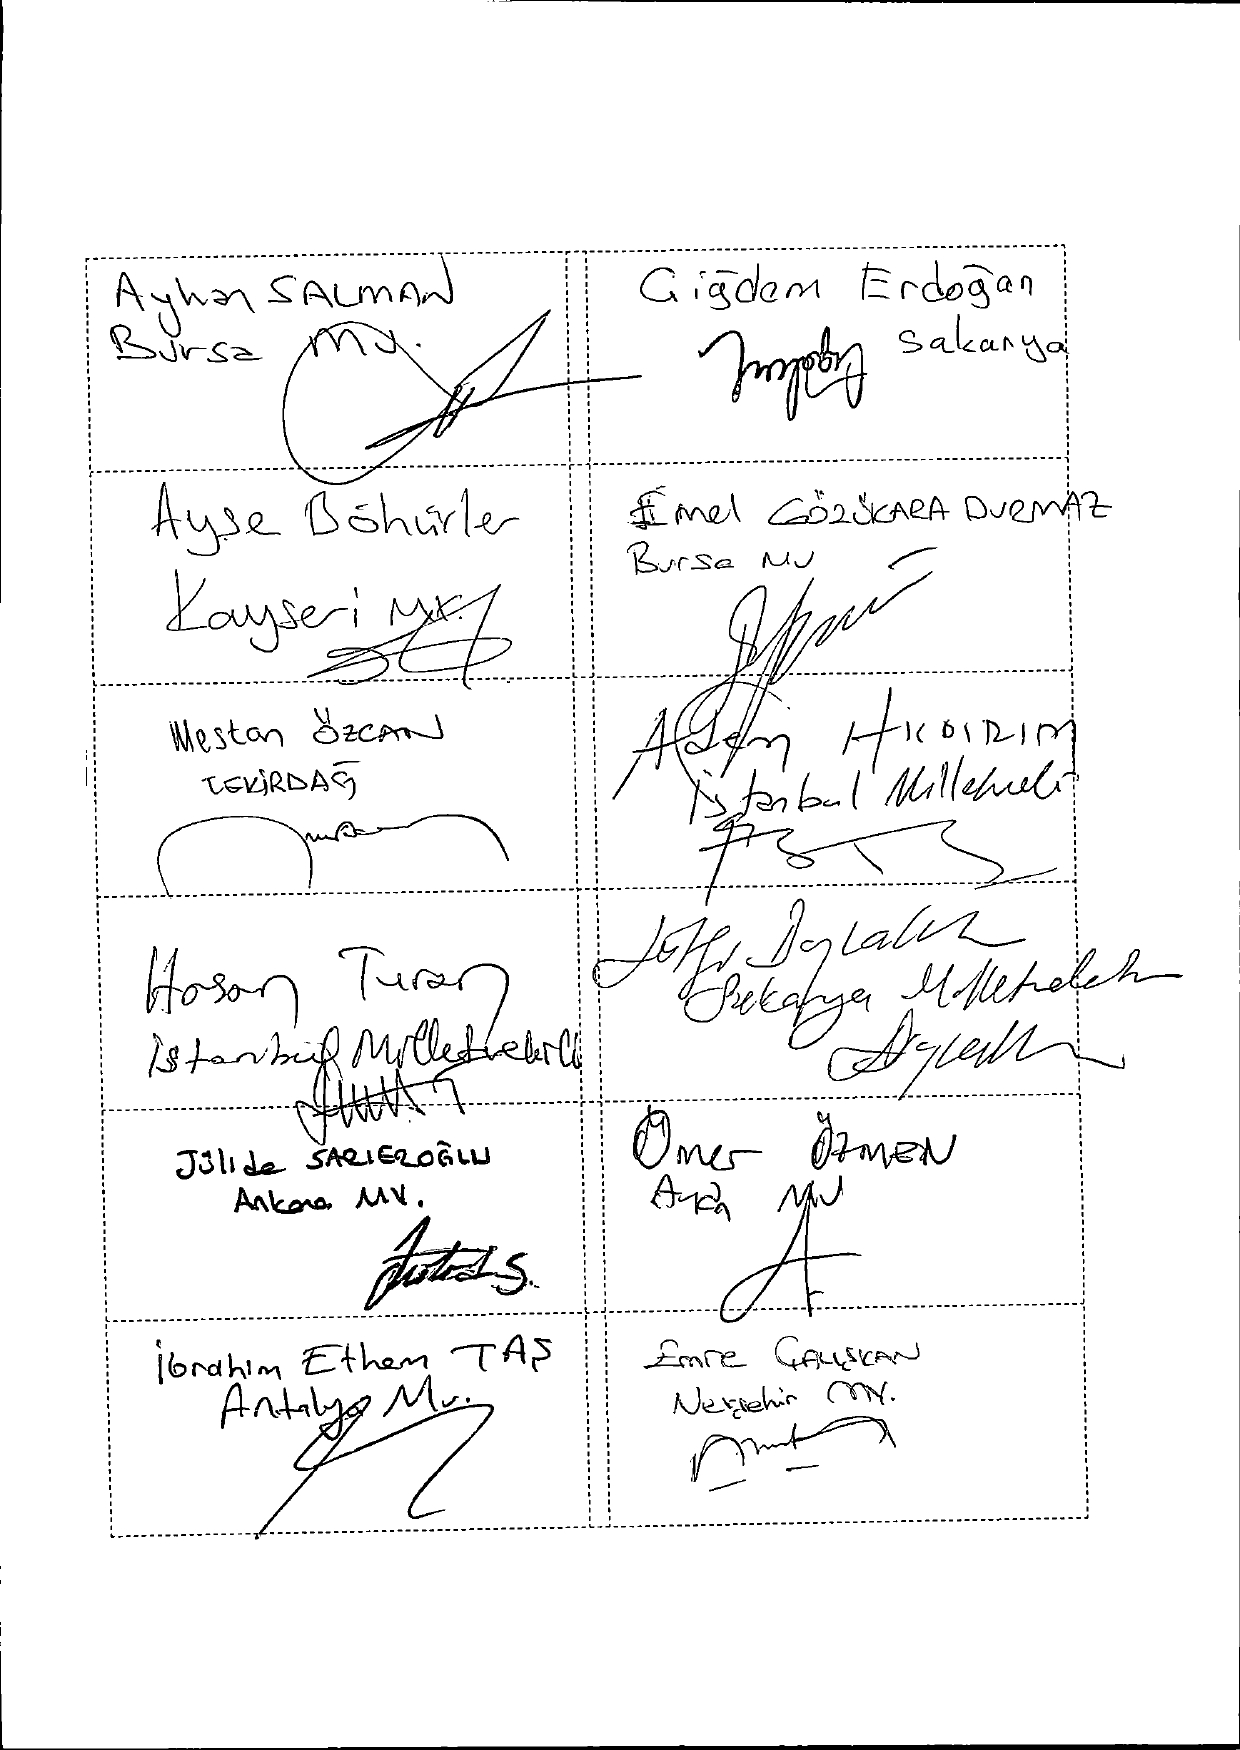 Ayhan SALMAN
Bursa MV.
Çiğdem Erdoğan
Sakarya
Ayşe Böhürler
Kayseri MV.
Emel GÖZÜKARA DURMAZ
Bursa MV
Mestan ÖZCAN
TEKİRDAĞ
YILDIRIM
İstanbul Milletvekili
Hasan Turan
İstanbul Milletvekili
Sakarya Milletvekili
Jülide SARIEROĞLU
Ankara MV.
Ömer ÖZMEN
MV
İbrahim Ethem TAŞ
Antalya Mv.
Emre ÇALIŞKAN
Nevşehir MV.